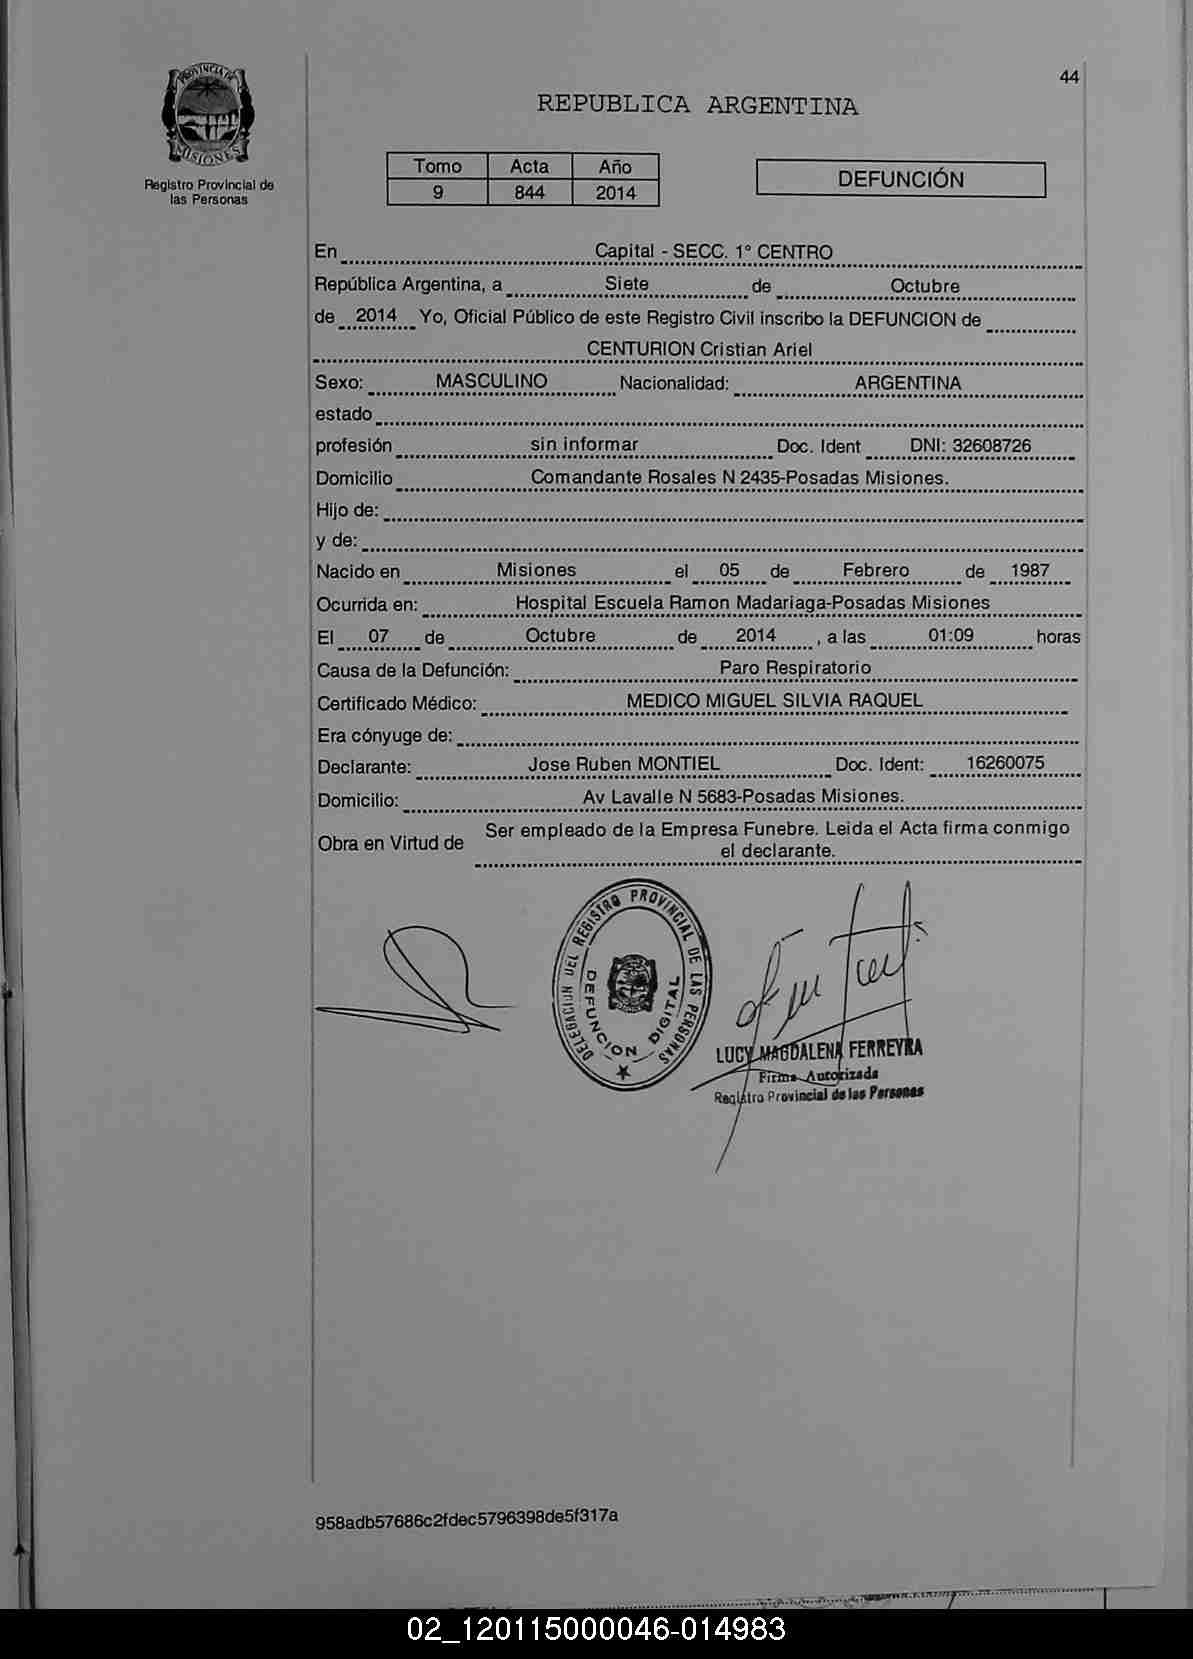 PROVINCIA DE
MISIONES
Registro Provincial de
las Personas
44
REPUBLICA ARGENTINA
Tomo Acta Año
9 844 2014
DEFUNCIÓN
En Capital - SECC. 1° CENTRO
República Argentina, a Siete de Octubre
de 2014 Yo, Oficial Público de este Registro Civil inscribo la DEFUNCION de
CENTURION Cristian Ariel
Sexo: MASCULINO Nacionalidad: ARGENTINA
estado
profesión sin informar Doc. Ident DNI: 32608726
Domicilio Comandante Rosales N 2435-Posadas Misiones.
Hijo de:
y de:
Nacido en Misiones el 05 de Febrero de 1987
Ocurrida en: Hospital Escuela Ramon Madariaga-Posadas Misiones
El 07 de Octubre de 2014 , a las 01:09 horas
Causa de la Defunción: Paro Respiratorio
Certificado Médico: MEDICO MIGUEL SILVIA RAQUEL
Era cónyuge de:
Declarante: Jose Ruben MONTIEL Doc. Ident: 16260075
Domicilio: Av Lavalle N 5683-Posadas Misiones.
Obra en Virtud de Ser empleado de la Empresa Funebre. Leida el Acta firma conmigo
el declarante.
DELEGACION DEL REGISTRO PROVINCIAL DE LAS PERSONAS
DEFUNCION DIGITAL
LUCY MAGDALENA FERREYRA
Firma Autorizada
Registro Provincial de las Personas
958adb57686c2fdec5796398de5f317a
02_120115000046-014983